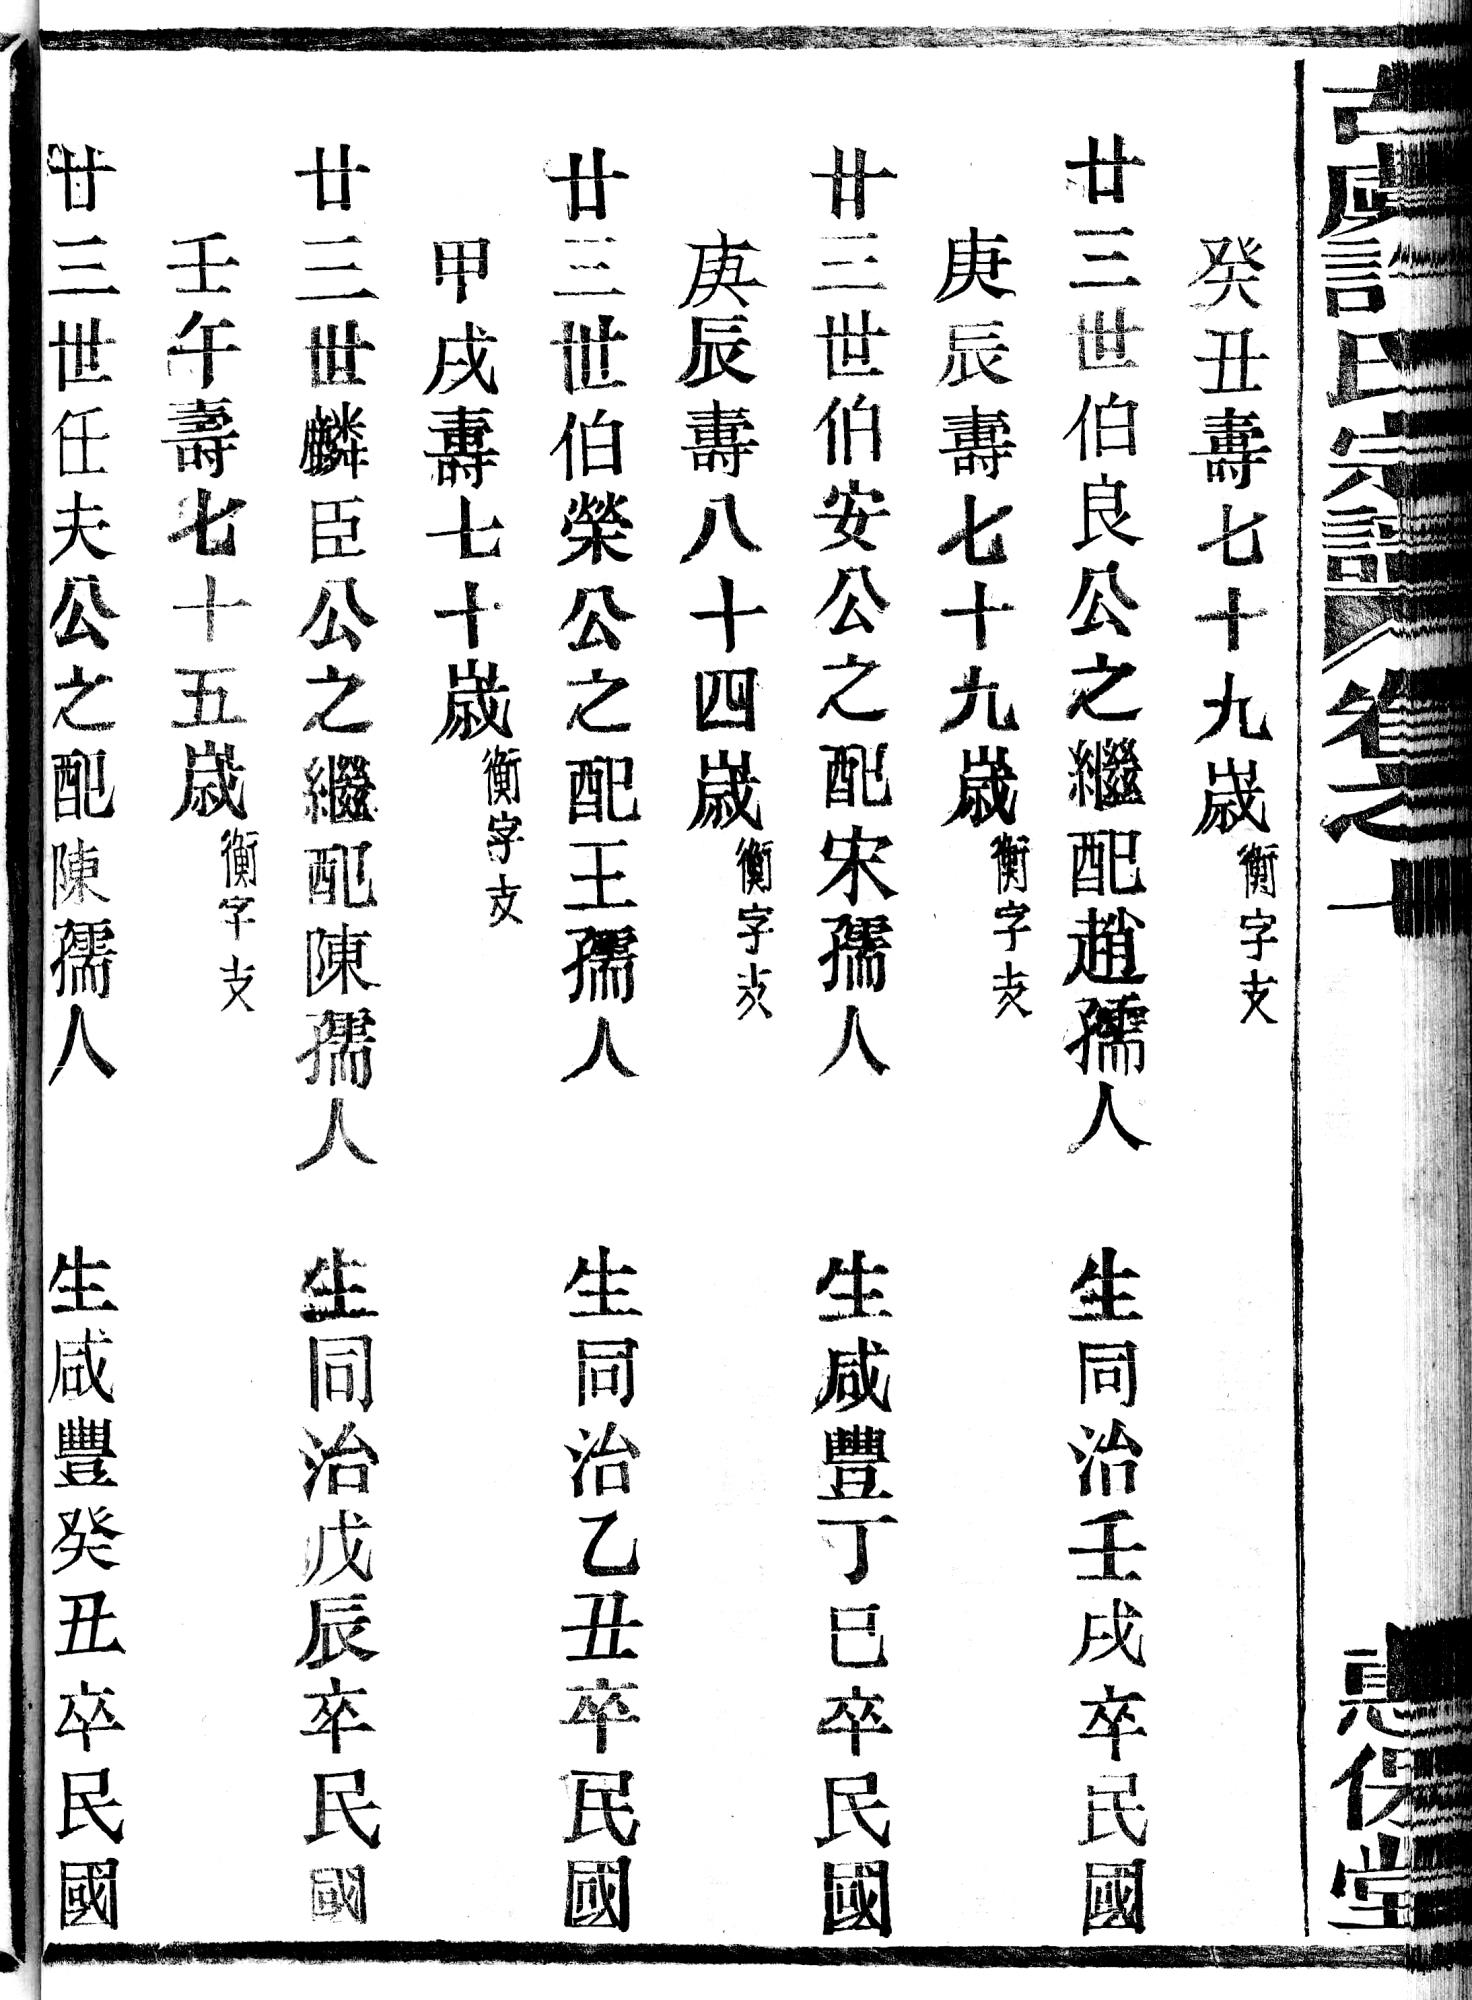 古虞許氏宗譜 卷之一 惠保堂
癸丑壽七十九歲衡字支
廿三世伯良公之繼配趙孺人 生同治壬戌卒民國
庚辰壽七十九歲衡字支
廿三世伯安公之配宋孺人 生咸豐丁巳卒民國
庚辰壽八十四歲衡字支
廿三世伯榮公之配王孺人 生同治乙丑卒民國
甲戌壽七十歲衡字支
廿三世麟臣公之繼配陳孺人 生同治戊辰卒民國
壬午壽七十五歲衡字支
廿三世任夫公之配陳孺人 生咸豐癸丑卒民國